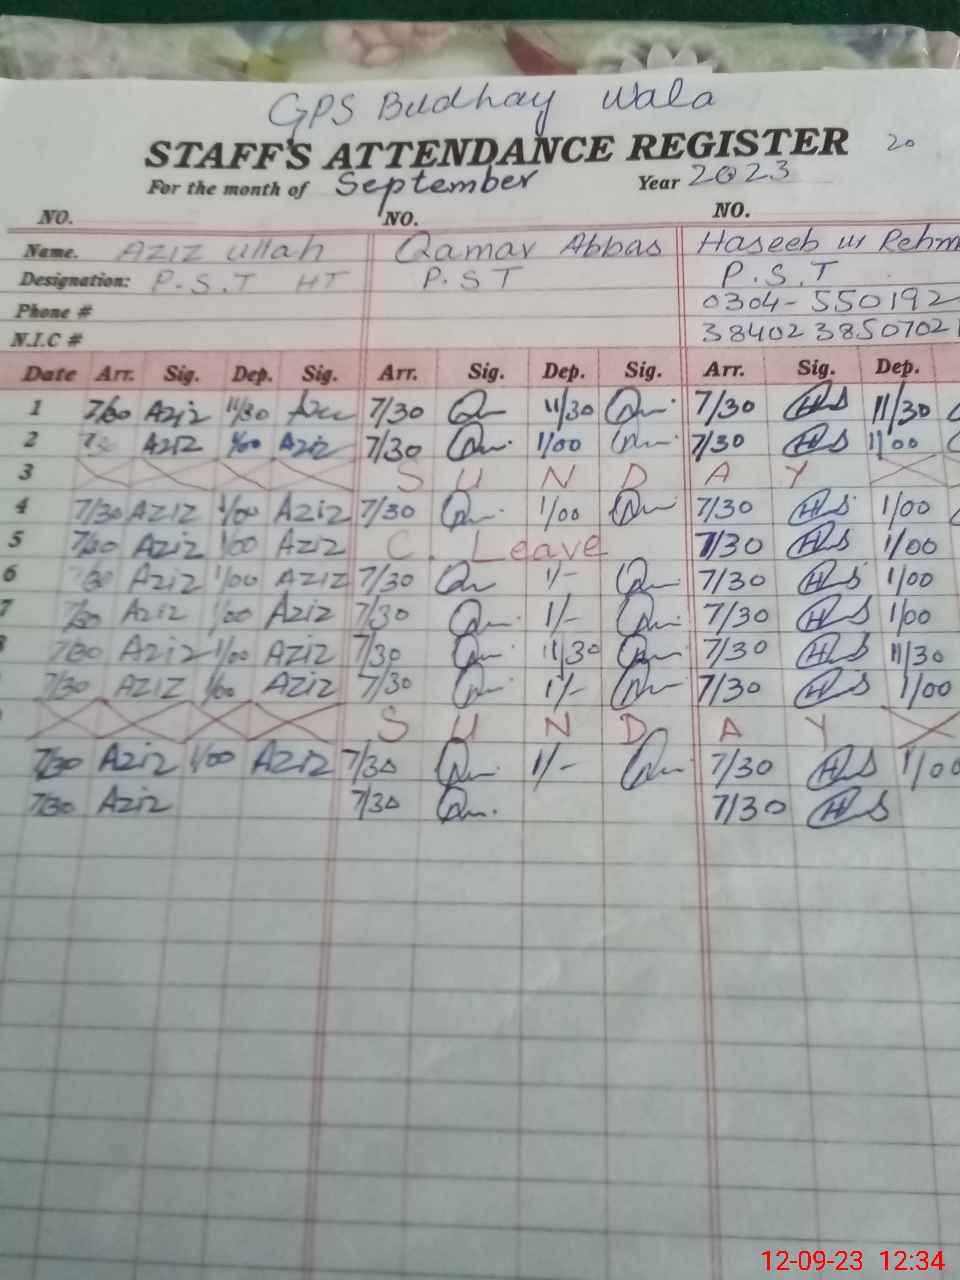 GPS Budhay Wala
STAFF'S ATTENDANCE REGISTER 20
For the month of September Year 2023
NO. NO. NO.
Name. Aziz ullah Qamar Abbas Haseeb ur Rehm
Designation: P.S.T HT P.S T P.S.T
Phone # 0304-550192
N.I.C # 384023850702
Date Arr. Sig. Dep. Sig. Arr. Sig. Dep. Sig. Arr. Sig. Dep.
1 7/30 Aziz 11/30 7/30 11/30 7/30 11/30
2 Aziz 1/00 Aziz 7/30 1/00 7/30 1/00
3 S U N D A Y
4 7/30 AZIZ 1/00 Aziz 7/30 1/00 7/30 1/00
5 7/30 Aziz 1/00 Aziz C. Leave 7/30 1/00
6 7/30 Aziz 1/00 AZIZ 7/30 1/- 7/30 1/00
7 7/30 Aziz 1/00 Aziz 7/30 1/- 7/30 1/00
7/30 Aziz 1/00 Aziz 7/30 11/30 7/30 11/30
7/30 AZIZ 1/00 AZIZ 7/30 1/- 7/30 1/00
S U N D A Y
7/30 Aziz 1/00 Aziz 7/30 1/- 7/30 1/00
7/30 Aziz 7/30 7/30
12-09-23 12:34